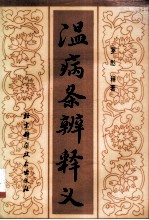 温病条辨释义
北京科学技术出版社